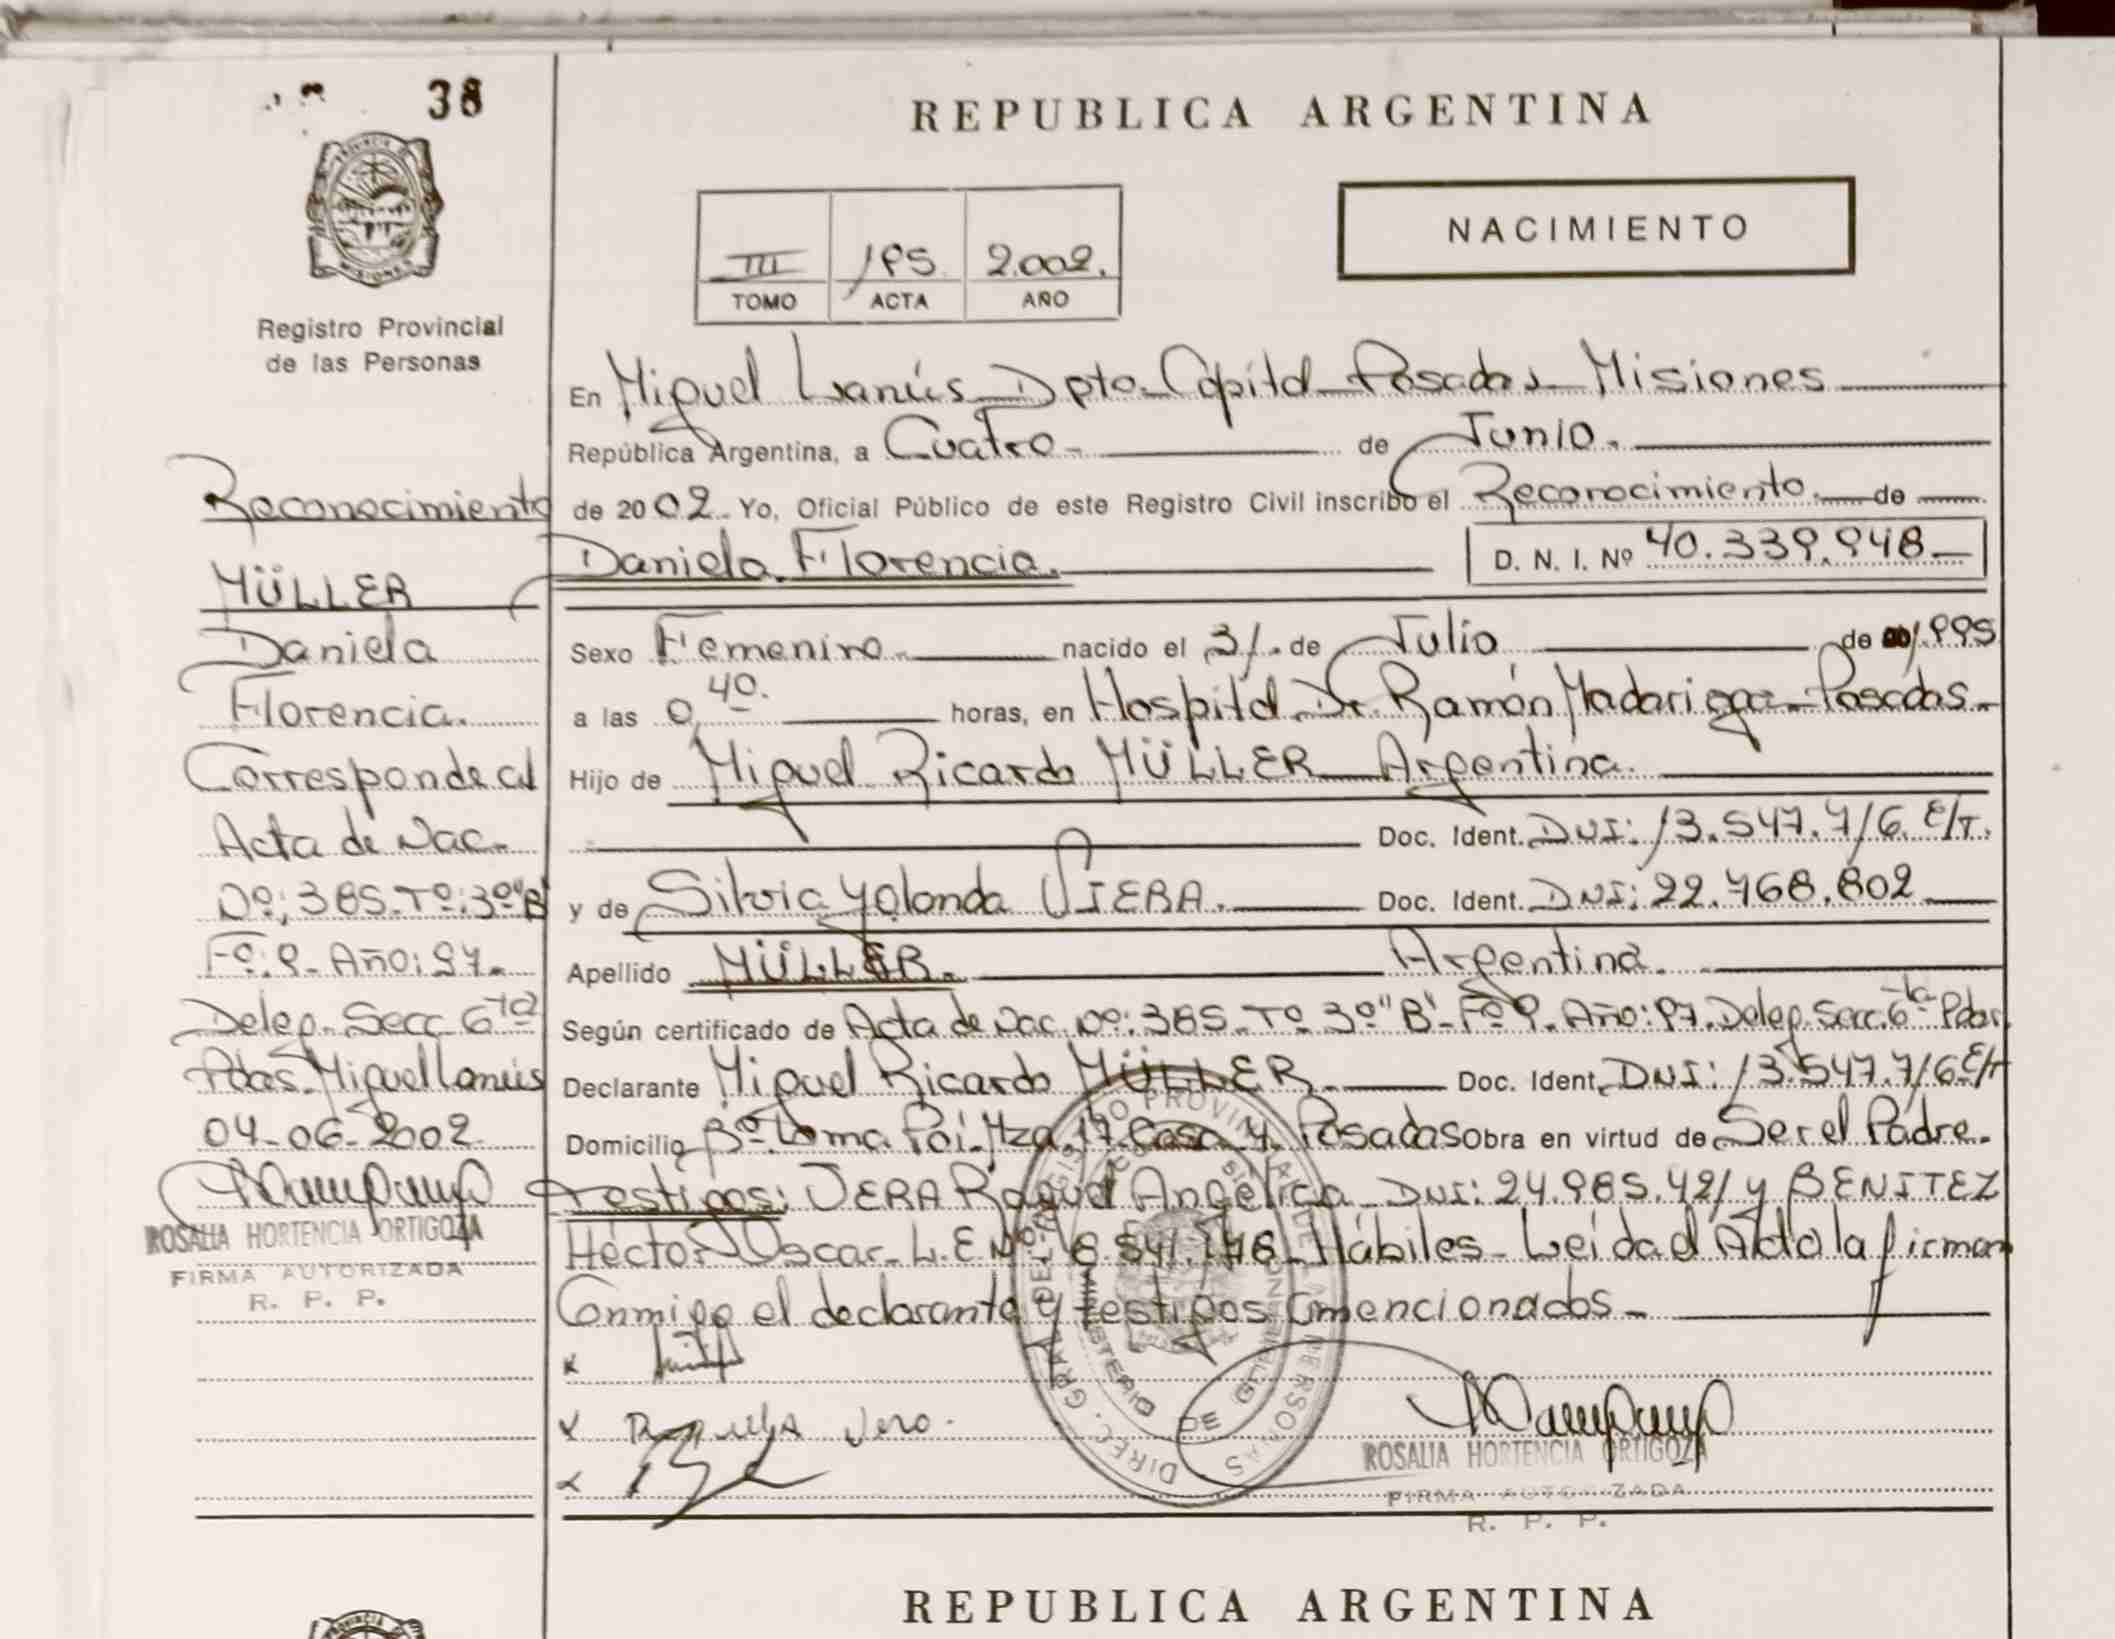 38
PROVINCIA DE
MISIONES
Registro Provincial
de las Personas
Reconocimiento
MÜLLER
Daniela
Florencia.
Corresponde al
Acta de Nac.
Nº: 385. Tº: 3º "B"
Fº: 9. Año: 97.
Deleg. Secc. 6ta
Pdas. Miguel Lanús
04-06-2002
ROSALIA HORTENCIA ORTIGOZA
FIRMA AUTORIZADA
R. P. P.
REPUBLICA ARGENTINA
NACIMIENTO
III 195 2.002.
TOMO ACTA AÑO
En Miguel Lanús Dpto. Capital Posadas Misiones
República Argentina, a Cuatro de Junio.
de 2002. Yo, Oficial Público de este Registro Civil inscribo el Reconocimiento. de
Daniela Florencia. D. N. I. Nº 40.339.948.
Sexo Femenino. nacido el 31. de Julio de 1.995
a las 0,40. horas, en Hospital Dr. Ramón Madariaga Posadas.
Hijo de Miguel Ricardo MÜLLER Argentina.
Doc. Ident. DNI: 13.547.716. E/T.
y de Silvia Yolanda VIERA. Doc. Ident. DNI: 22.768.802
Apellido MÜLLER. Argentina.
Según certificado de Acta de Nac. Nº: 385. Tº 3º "B" Fº 9. Año: 97. Deleg. Secc. 6ta Pdas.
Declarante Miguel Ricardo MÜLLER. Doc. Ident. DNI: 13.547.716 E/T
Domicilio Bº Loma Poi. Mza. 17. Casa 4. Posadas Obra en virtud de Ser el Padre.
Testigos: VERA Raquel Angélica DNI: 24.985.421 y BENITEZ
Héctor Oscar. L.E Nº: 8.541.748 Hábiles. Leída el Acta la firman
Conmigo el declarante y testigos mencionados.
x
x Raquel Vera.
x
ROSALIA HORTENCIA ORTIGOZA
FIRMA AUTORIZADA
R. P. P.
DIREC. GRAL. DEL REGISTRO PROVINCIAL DE LAS PERSONAS
MINISTERIO DE GOBIERNO
REPUBLICA ARGENTINA
PROVINCIA